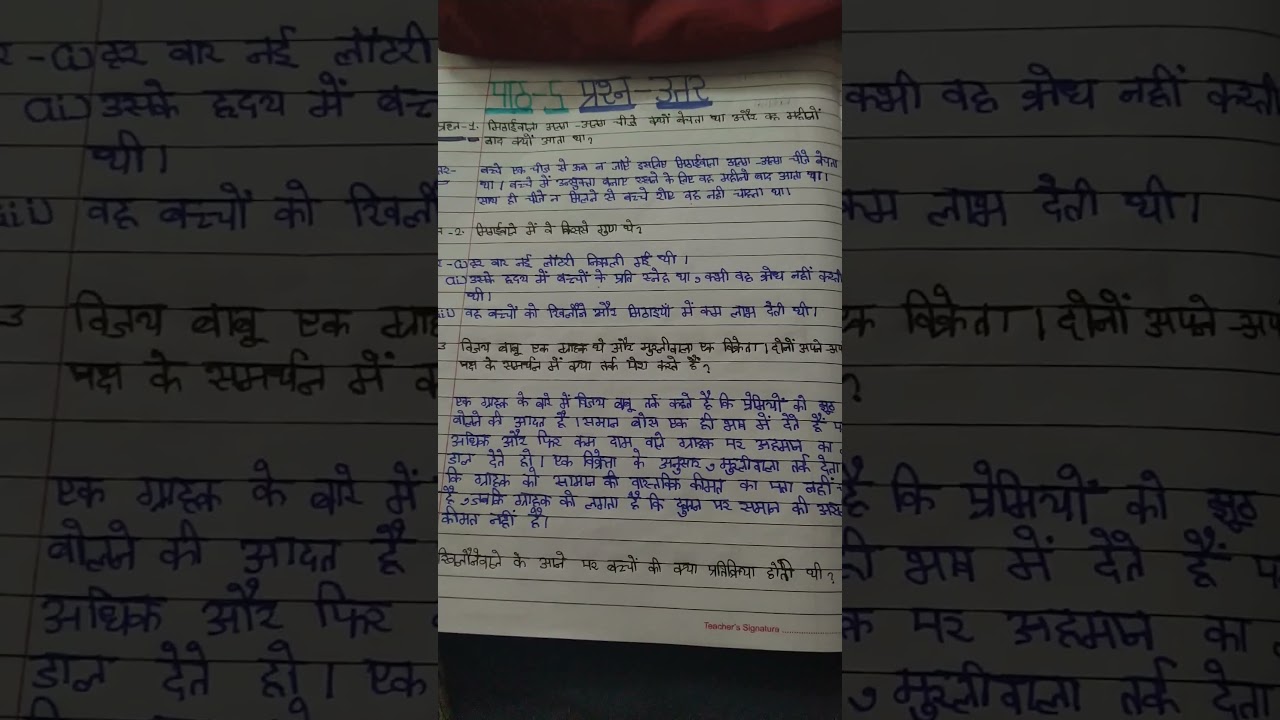 पाठ-5 प्रश्न-उत्तर
प्रश्न-1. मिठाईवाला अलग-अलग चीजें क्यों बेचता था और वह महीनों
बाद क्यों आता था?
बच्चे एक चीज से ऊब न जाएँ इसलिए मिठाईवाला अलग-अलग चीजें बेचता
था। बच्चे में उत्सुकता बनाए रखने के लिए वह महीनों बाद आता था।
साथ ही चीजें न मिलने से बच्चे रोएँ वह नहीं चाहता था।
-2. मिठाईवाले में वे किससे गुण थे?
(i) हर बार नई लॉटरी निकाली गई थी।
(ii) उसके हृदय में बच्चों के प्रति स्नेह था, कभी वह क्रोध नहीं करती
थी।
वह बच्चों को खिलौने और मिठाइयाँ में कम लाभ देती थी।
3 विजय बाबू एक ग्राहक थे और मुरलीवाला एक विक्रेता। दोनों अपने-अप
पक्ष के समर्थन में क्या तर्क पेश करते हैं?
एक ग्राहक के बारे में विजय बाबू तर्क कहते है कि प्रेमियों को झूठ
बोलने की आदत है। समान बोस एक ही भाम में देते हैं प
अधिक और फिर कम दाम वाले ग्राहक पर अहमान का
डाल देते हो। एक विक्रेता के अनुसार, मुरलीवाला तर्क देता
कि ग्राहक को सामान की वास्तविक कीमत का पता नहीं
है, जबकि ग्राहक को लगता है कि दुकान पर समान की अस
कीमत नहीं है।
खिलौनेवाले के आने पर बच्चों की क्या प्रतिक्रिया होती थी?
Teacher's Signature